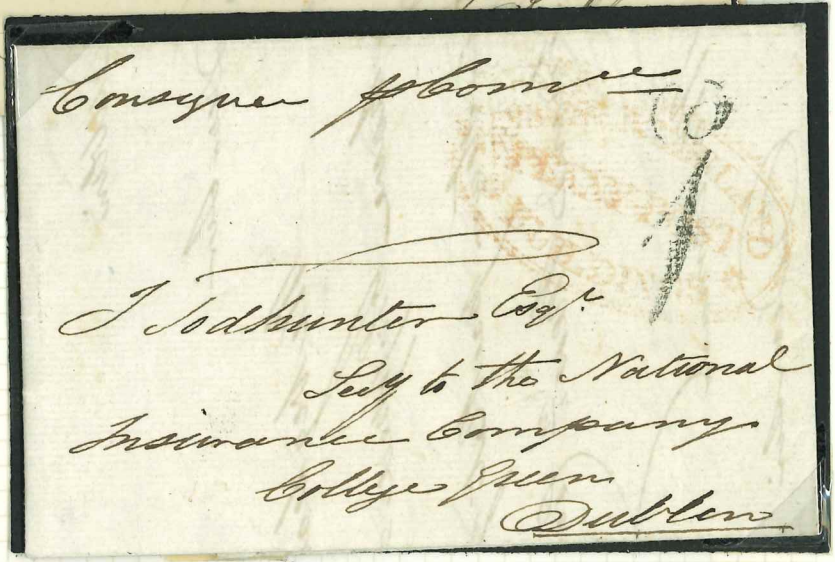 Consignee p Comee
J Todhunter Esqr.
Secy to the National
Insurance Company
College Green
Dublin